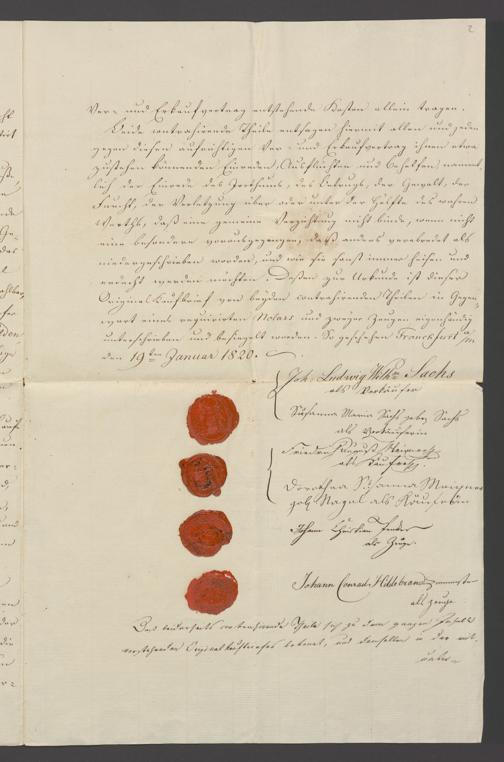 2
Ver- und Erkaufvertrag entstehende Kosten allein tragen.
Beide contrahirende Theile entsagen hiermit allen und jeden
gegen diesen aufrichtigen Ver- und Erkaufvertrag ihnen etwa
zustehen könnenden Einreden, Ausflüchten und Behelfen nament-
lich der Einrede des Irrthums, des Betrugs, der Gewalt, der
Furcht, der Verletzung über oder unter der Hälfte des wahren
Werths, daß eine gemeine Verzichtung nicht binde, wenn nicht
eine besondere vorausgegangen, daß anders verabredet als
niedergeschrieben worden, und wie sie sonst immer heisen und
erdacht werden möchten. Dessen zur Urkunde ist dieser
Original Kaufbrief von beyden contrahirenden Theilen in Gegen-
wart eines requirirten Notars und zweyer Zeugen eigenhändig
unterschrieben und besiegelt worden. So geschehen Franckfurt a/m
den 19ten Januar 1820.
Joh. Ludwig Wilhm Sachs
als Verkäufer
Susanna Maria Sachs geb. Sachs
als Verkäuferin
Friedrich August
als Käufer.
Dorothea Susanna
geb. Nagel als Käuferin
Johann Christian
als Zeuge.
Johann Conrad Hildebrand
als Zeuge
Das beiderseits contrahirende Theile sich zu dem ganzen Inhalt
vorstehenden Original Kaufbriefs bekannt, und denselben in der
unter-